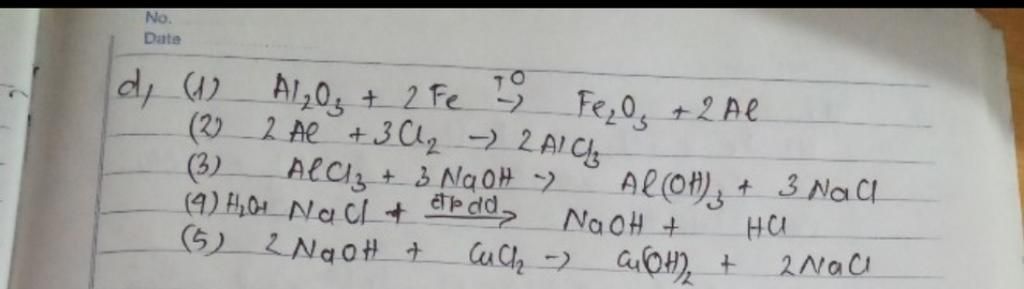 No.
Date
d, (1) Al₂O₃ + 2 Fe T⁰→ Fe₂O₃ + 2 Al
(2) 2 Al + 3 Cl₂ → 2 AlCl₃
(3) AlCl₃ + 3 NaOH → Al(OH)₃ + 3 NaCl
(4) H₂O + NaCl → NaOH + HCl
(5) 2 NaOH + CuCl₂ → Cu(OH)₂ + 2 NaCl